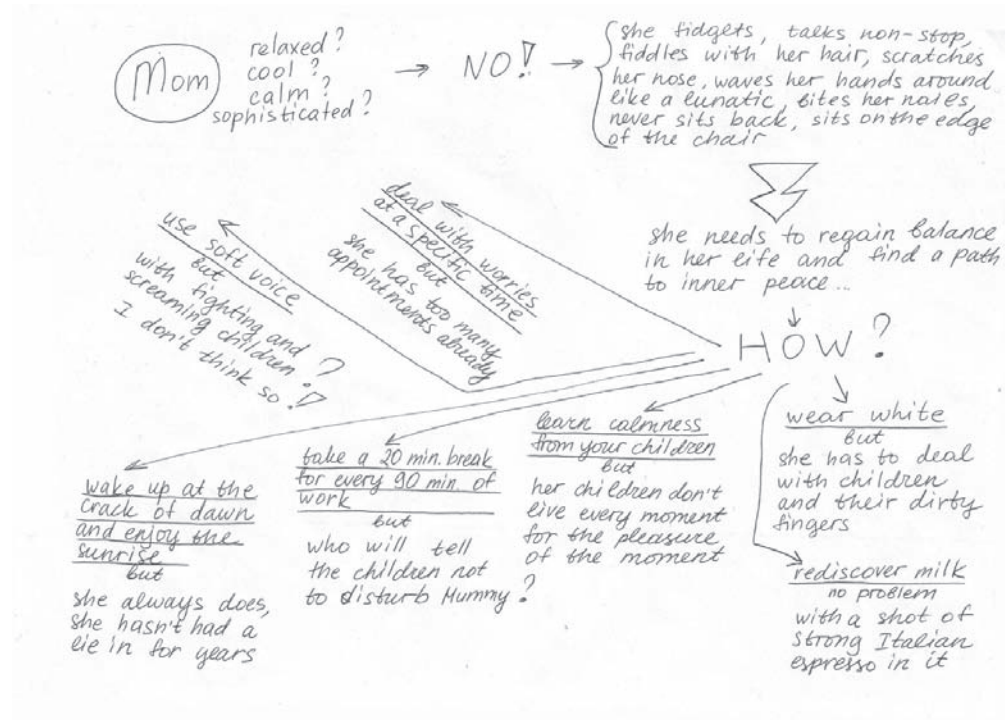 Mom
relaxed?
cool?
calm?
sophisticated?
→ NO! →
she fidgets, talks non-stop,
fiddles with her hair, scratches
her nose, waves her hands around
like a lunatic, bites her nails,
never sits back, sits on the edge
of the chair
she needs to regain balance
in her life and find a path
to inner peace...
HOW?
deal with worries
at a specific time
but
she has too many
appointments already
use soft voice
but
with fighting and
screaming children?!
I don't think so!
wake up at the
crack of dawn
and enjoy the
sunrise
but
she always does,
she hasn't had a
lie in for years
take a 20 min. break
for every 90 min. of
work
but
who will tell
the children not
to disturb Mummy?
learn calmness
from your children
but
her children don't
live every moment
for the pleasure
of the moment
wear white
but
she has to deal
with children
and their dirty
fingers
rediscover milk
no problem
with a shot of
strong Italian
espresso in it